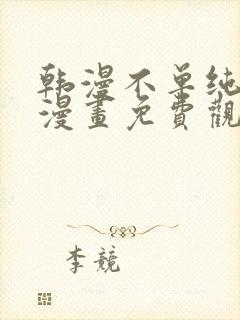 韩漫不单纯
漫畫免費觀
李競